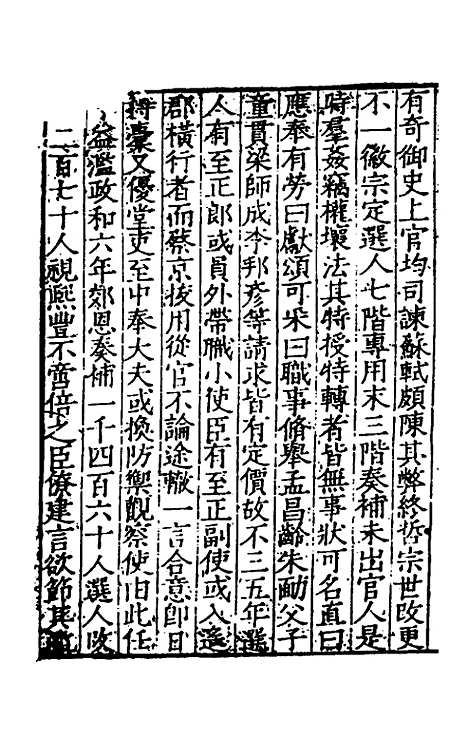 有奇御史上官均司諫蘇軾頗陳其弊終哲宗世改更
不一徽宗定選人七階專用末三階奏補未出官人是
時羣姦竊權壞法其特授特轉者皆無事狀可名直曰
應奉有勞曰獻頌可采曰職事脩舉孟昌齡朱勔父子
童貫梁師成李邦彥等請求皆有定價故不三五年選
人有至正郎或員外帶職小使臣有至正副使或入遥
郡橫行者而蔡京拔用從官不論途轍一言合意卽日
持橐又優堂吏至中奉大夫或換防禦觀察使旧此任
益濫政和六年郊恩奏補一千四百六十人選人改
二百七十人視熙豐不啻倍之臣僚建言欲節其